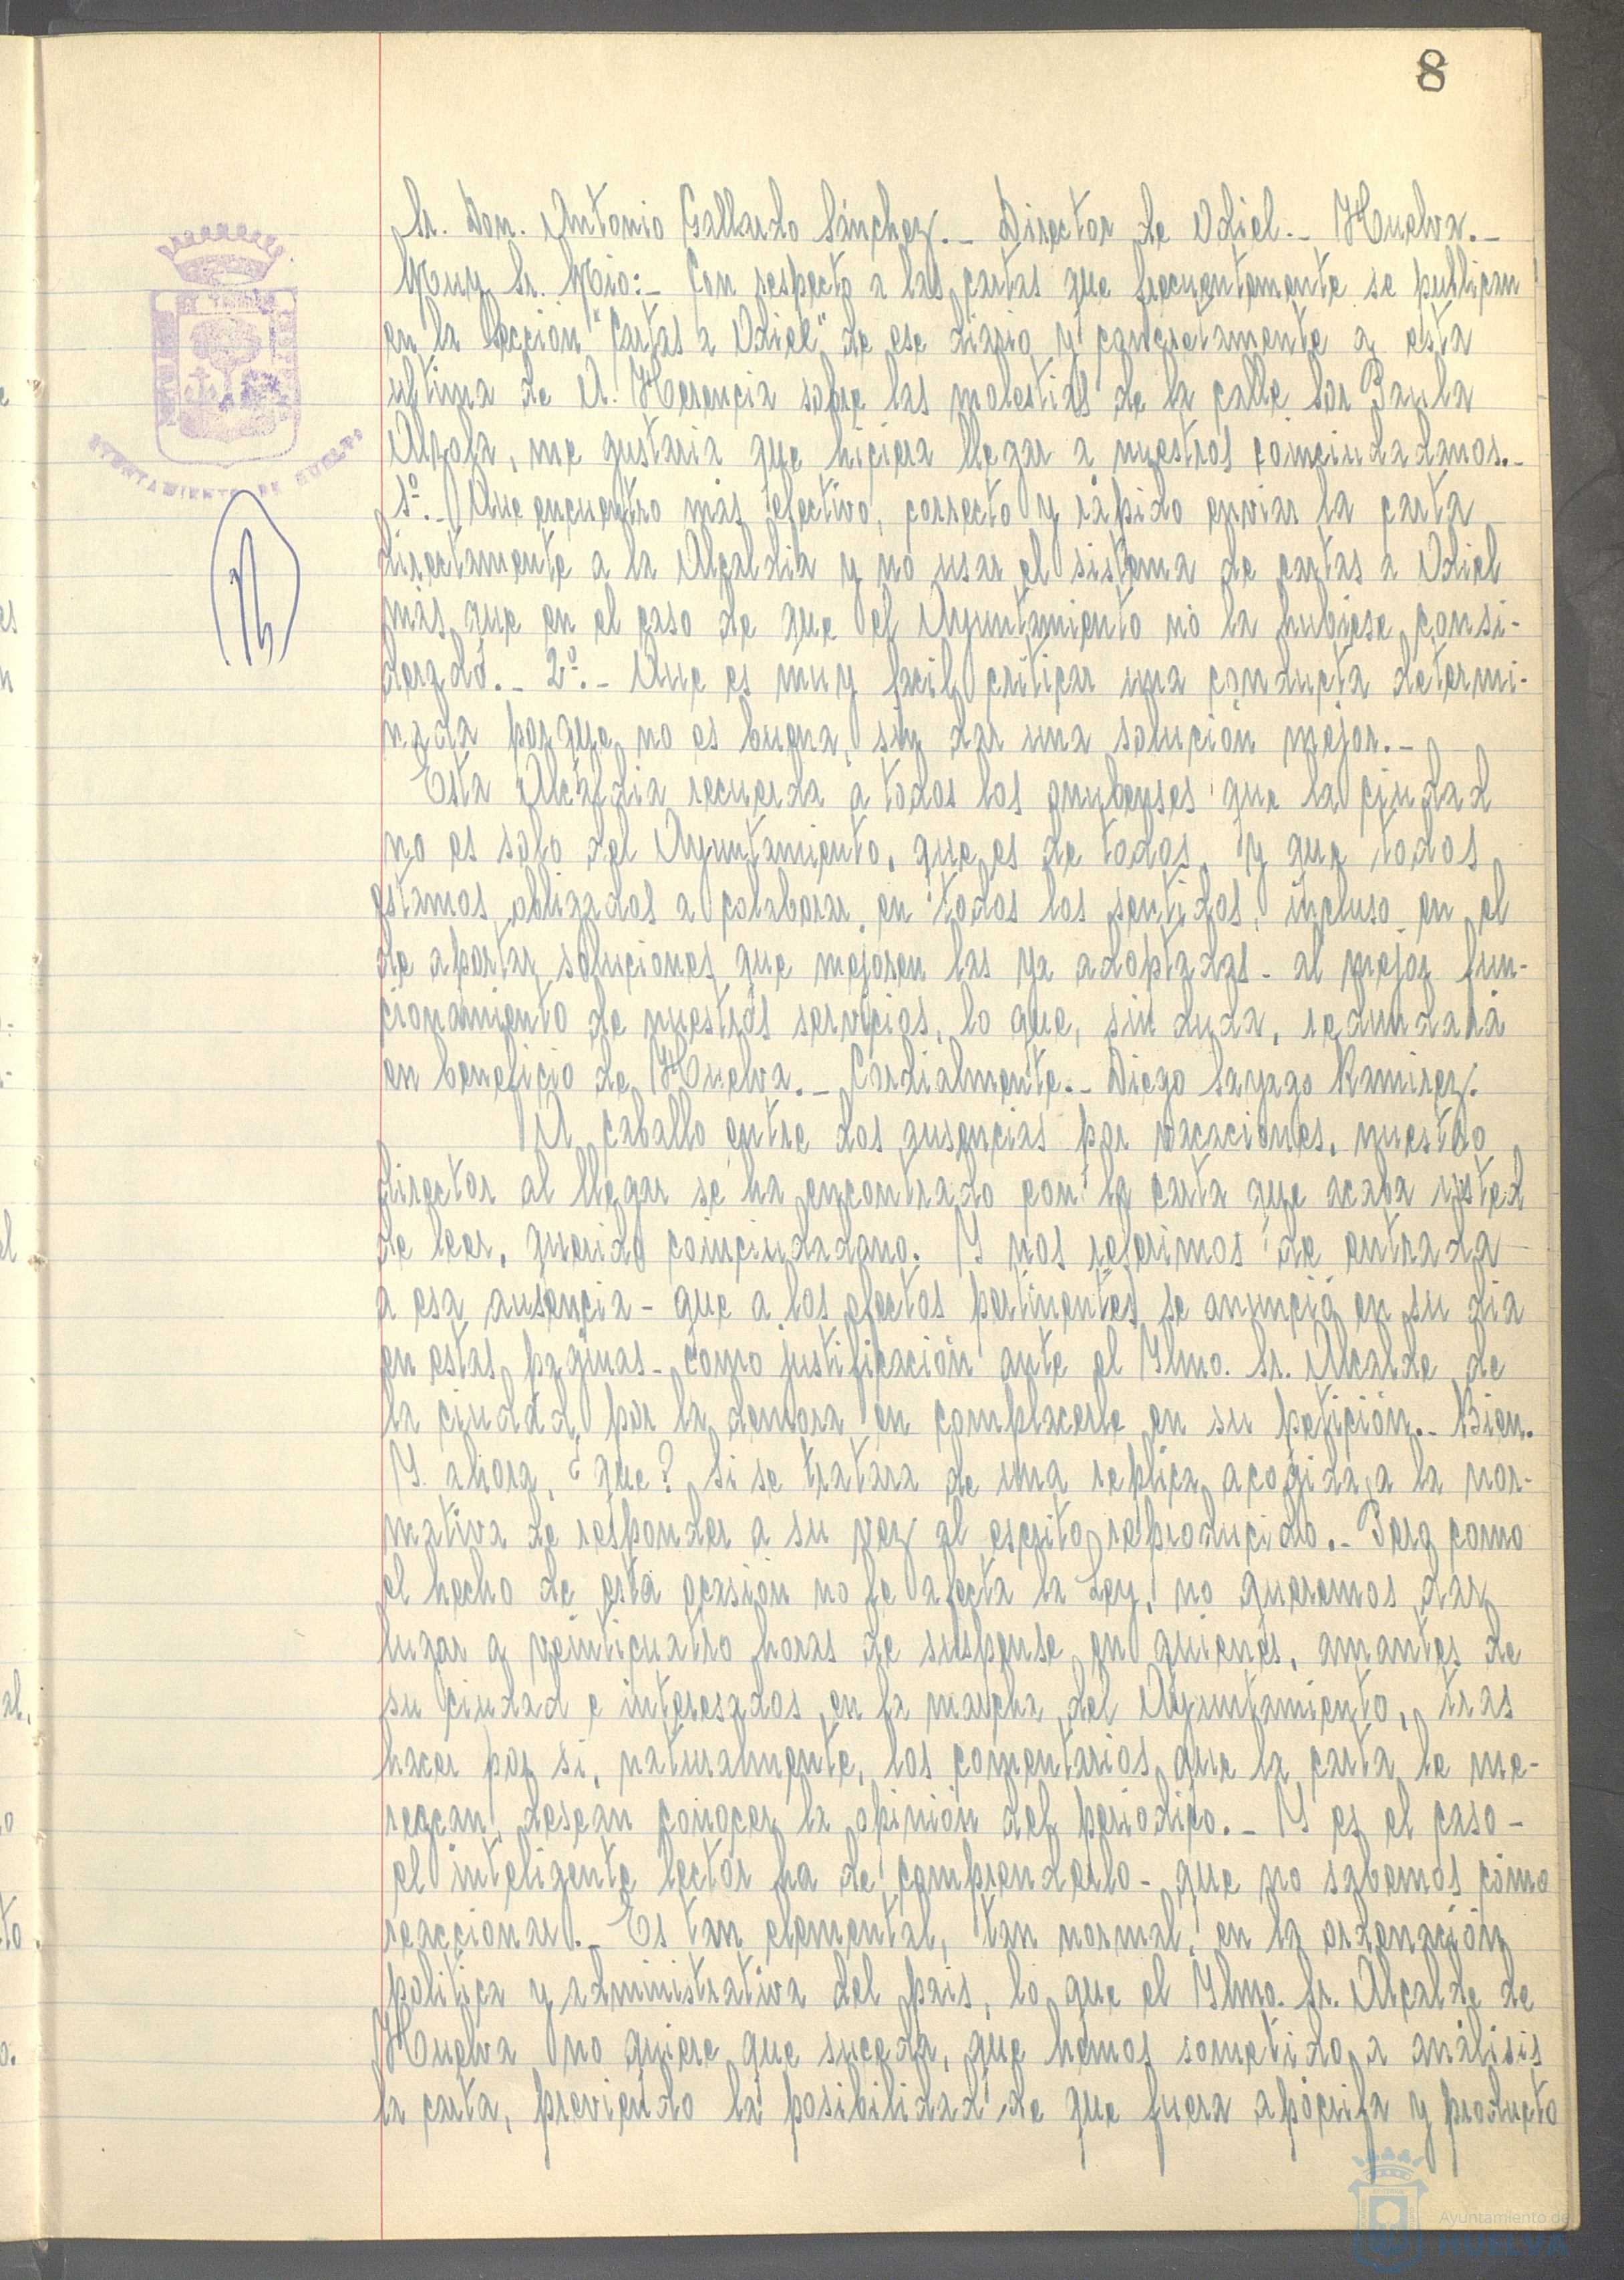 8
Sr. Don. Antonio Gallardo Sánchez.- Director de Odiel.- Huelva.-
Muy Sr. Mio:- Con respecto a las cartas que frecuentemente se publican
en la Sección "Cartas a Odiel" de ese diario y concretamente a esta
ultima de A. Herencia sobre las molestias de la calle Sor Paula
Alzola, me gustaria que hiciera llegar a nuestros coinciudadanos.-
1º.- Que encuentro más efectivo, correcto y rápido enviar la carta
directamente a la Alcaldia y no usar el sistema de cartas a Odiel
más que en el caso de que el Ayuntamiento no la hubiese consi-
derado.- 2º.- Que es muy facil criticar una conducta determi-
nada porque no es buena, sin dar una solución mejor.-
Esta Alcaldia recuerda a todos los onubenses que la ciudad
no es solo del Ayuntamiento, que es de todos, y que todos
estamos obligados a colaborar en todos los sentidos, incluso en el
de aportar soluciones que mejoren las ya adoptadas- al mejor fun-
cionamiento de nuestros servicios, lo que, sin duda, redundará
en beneficio de Huelva.- Cordialmente.- Diego Sayago Ramirez.
A caballo entre dos ausencias por vacaciones, nuestro
director al llegar se ha encontrado con la carta que acaba usted
de leer, querido coinciudadano. Y nos referimos de entrada
a esa ausencia- que a los efectos pertinentes se anunció en su dia
en estas paginas- como justificación ante el Ylmo. Sr. Alcalde de
la ciudad, por la demora en complacerle en su petición.- Bien.
Y ahora, ¿que? Si se tratara de una replica acogida a la nor-
mativa de responder a su vez al escrito reproducido.- Pero como
el hecho de esta ocasión no le afecta la Ley, no queremos dar
lugar a veinticuatro horas de suspense en quienes, amantes de
su ciudad e interesados en la marcha del Ayuntamiento, tras
hacer por si, naturalmente, los comentarios que la carta le me-
rezcan, desean conocer la opinión del periodico.- Y es el caso-
el inteligente lector ha de comprenderlo- que no sabemos cómo
reaccionar.- Es tan elemental, tan normal, en la ordenación
politica y administrativa del pais, lo que el Ylmo. Sr. Alcalde de
Huelva no quiere que suceda, que hemos sometido a análisis
la carta, previendo la posibilidad de que fuera apócrifa y producto
AYUNTAMIENTO DE HUELVA
Ayuntamiento de
HUELVA